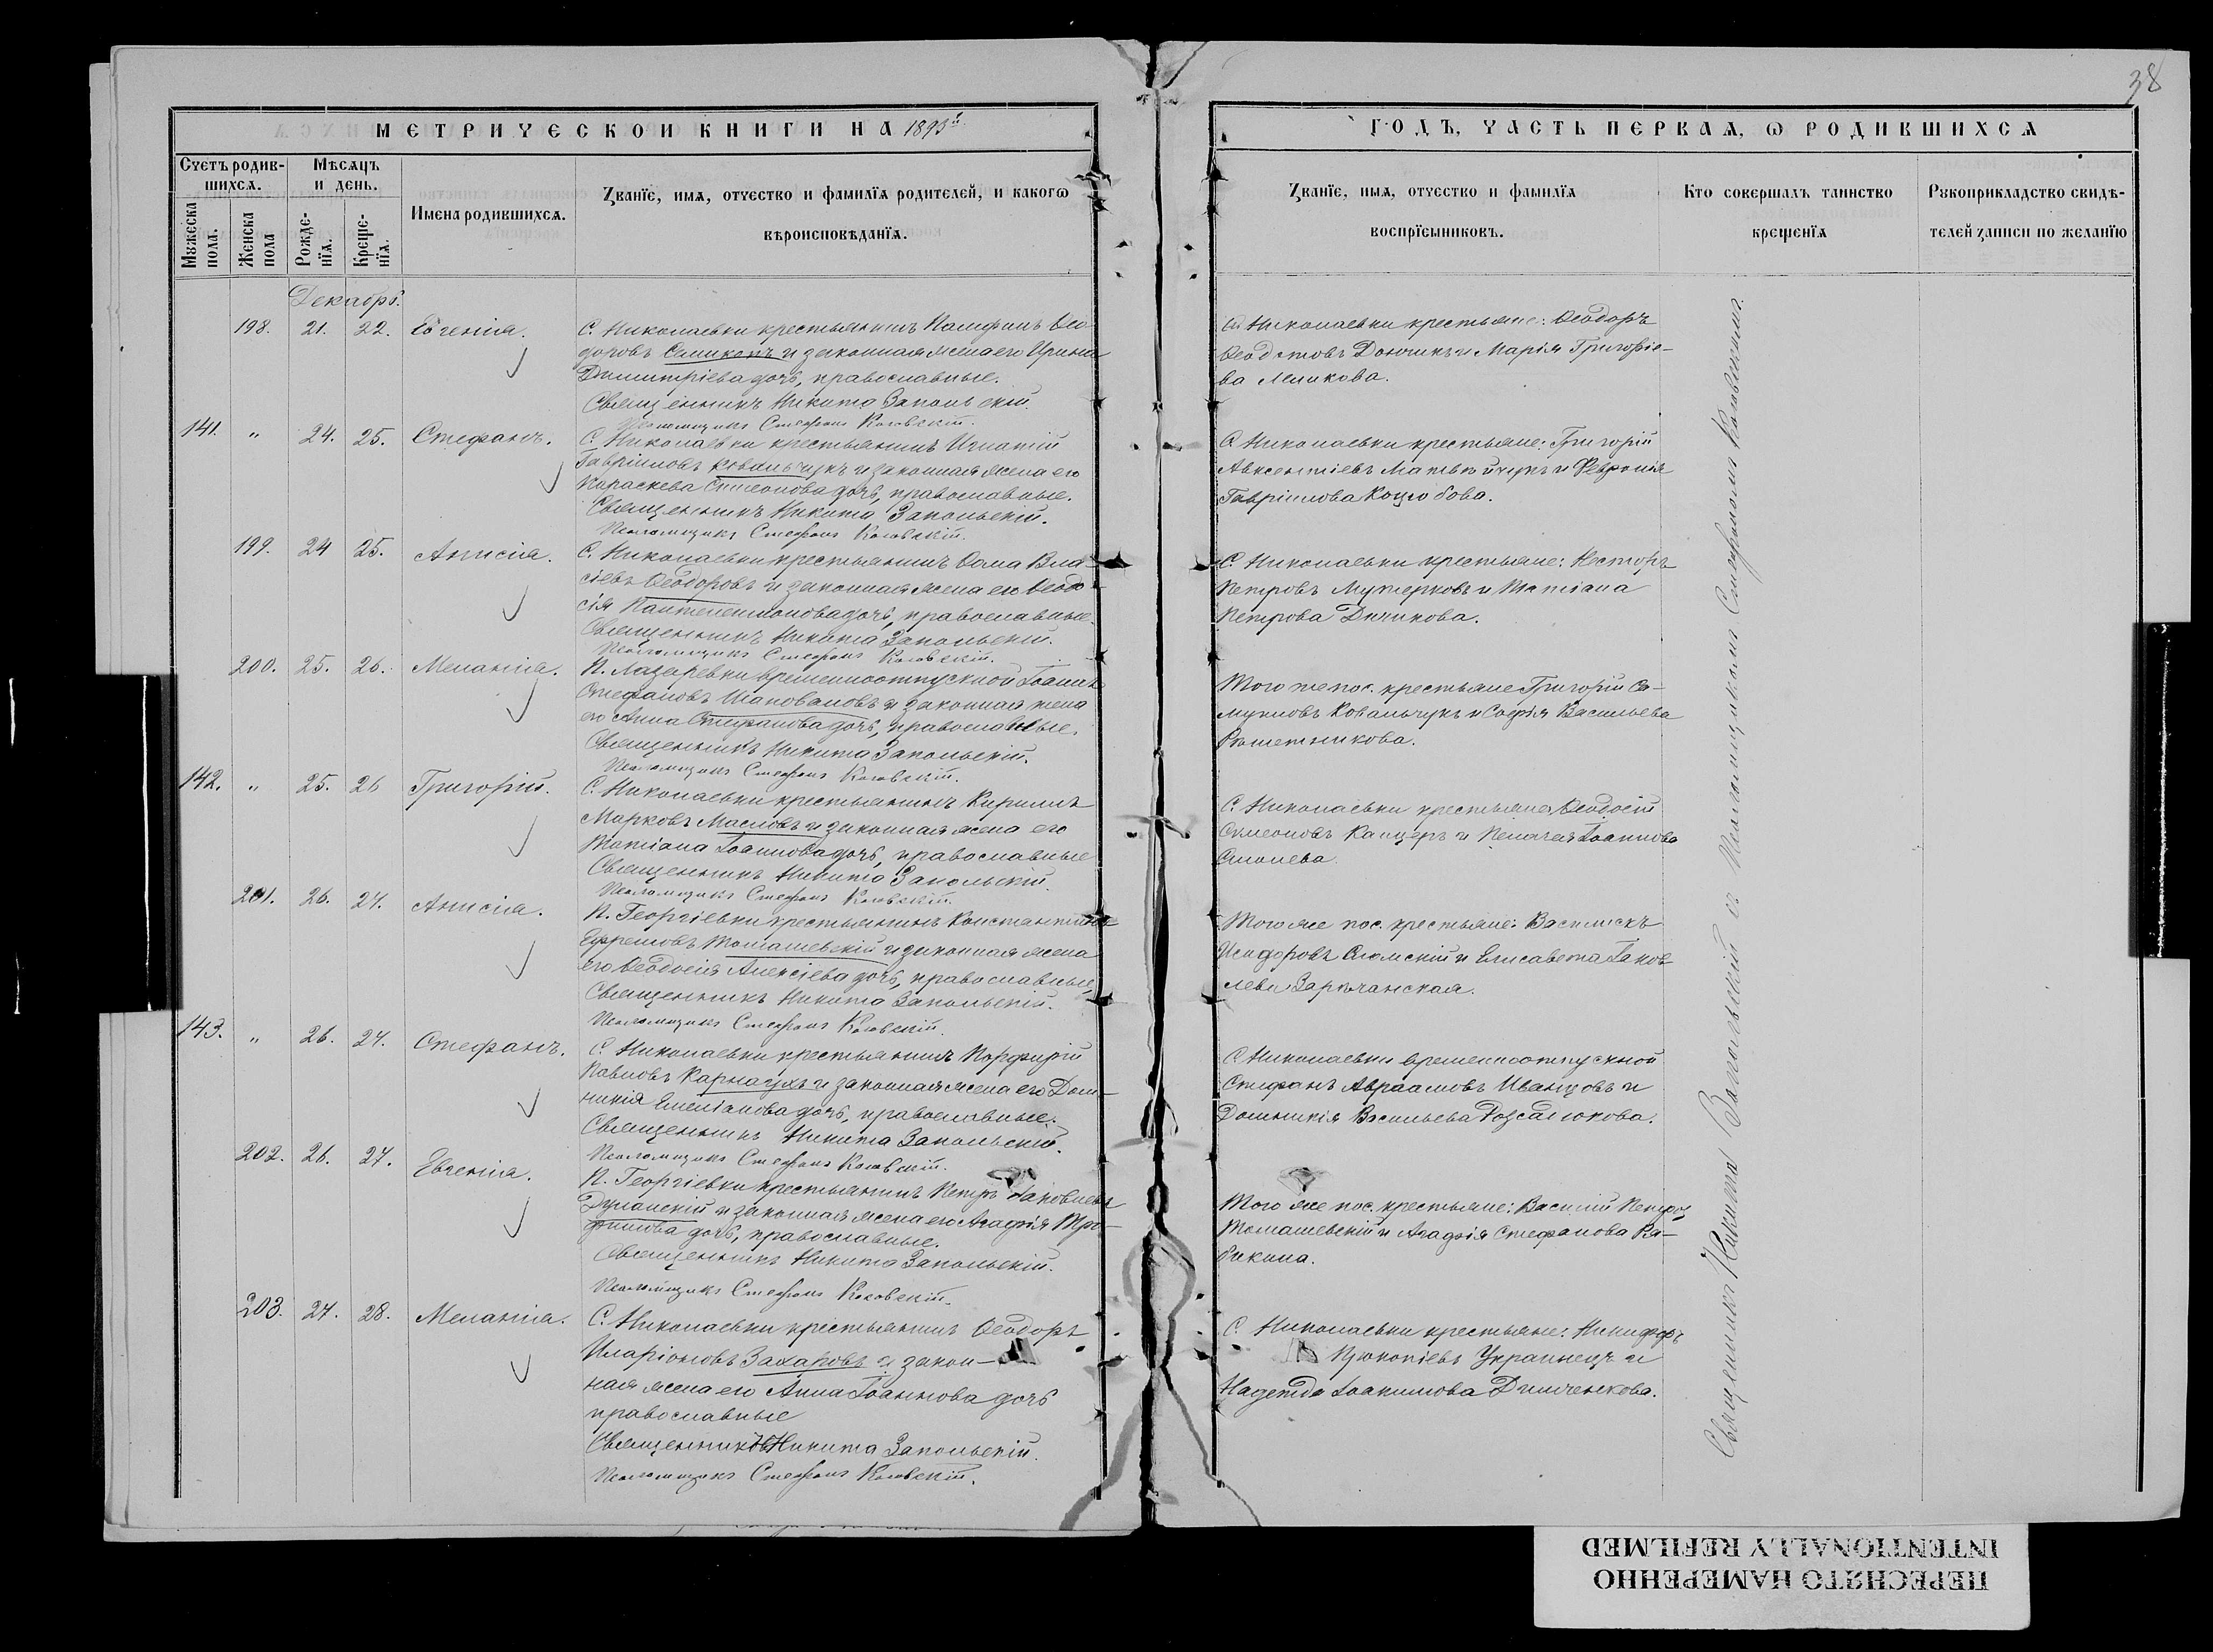 38
МЕТРИЧЕСКОЙ КНИГИ НА 1893й
ГОДЪ, ЧАСТЬ ПЕРВАЯ, Ѡ РОДИВШИХСЯ
Счетъ родив-
шихся.
Мѣсяцъ
и день.
Имена родившихся.
Званїе, имя, отчество и фамилїя родителей, и какогѡ
вѣроисповѣданїя.
Мужеска
пола.
Женска
пола
Рожде-
нїя.
Креще-
нїя.
Званїе, имя, отчество и фамилїя
воспрїемниковъ.
Кто совершалъ таинство
крещенїя
Рукоприкладство свидѣ-
телей записи по желанїю
Декабрь.
198. 21. 22. Евгенія.
С. Николаевки крестьянинъ Памфилъ Ѳео-
доровъ и законная жена его Ирина
Димитріева дочь, православные.
Священникъ Никита Запольскій.
Псаломщикъ Стефанъ Коковскій.
С. Николаевки крестьяне: Ѳеодоръ
Дончикъ и Марія Григоріе-
ва
141. " 24. 25. Стефанъ.
С. Николаевки крестьянинъ Игнатій
Гавріиловъ Ковальчукъ и законная жена его
Параскева Симеонова дочь, православные.
Священникъ Никита Запольскій.
Псаломщикъ Стефанъ Коковскій.
С. Николаевки крестьяне: Григорій
Авксентіевъ Матвійчукъ и Феронія
Гавріилова Коцюбова.
199. 24 25. Анисія.
С. Николаевки крестьянинъ Ѳома Вла-
сіевъ Ѳеодоровъ и законная жена его Ѳеодо-
сія Пантелеимонова дочь, православные.
Священникъ Никита Запольскій.
Псаломщикъ Стефанъ Коковскій.
С. Николаевки крестьяне: Несторъ
Петровъ и Татіана
Петрова
200. 25. 26. Меланія.
П. Лазаревки временноотпускной Іоаннъ
Стефановъ Шаповаловъ и законная жена
его Анна Стефанова дочь, православные.
Священникъ Никита Запольскій.
Псаломщикъ Стефанъ Коковскій.
Того же пос. крестьяне Григорій Са-
муиловъ Ковальчукъ и Софія Васильева
Решетникова.
142. " 25. 26 Григорій.
С. Николаевки крестьянинъ Кириллъ
Марковъ Масловъ и законная жена его
Татіана Іоаннова дочь, православные
Священникъ Никита Запольскій.
Псаломщикъ Стефанъ Коковскій.
С. Николаевки крестьяне Ѳеодосій
Симеоновъ Канцеръ и Пелагея Іоаннова
201. 26. 27. Анисія.
П. Георгіевки крестьянинъ Константинъ
Ефремовъ Томашевскій и законная жена
его Ѳеодосія Алексіева дочь, православные,
Священникъ Никита Запольскій.
Псаломщикъ Стефанъ Коковскій.
Того же пос. крестьяне: Василискъ
Исидоровъ и Елисавета Іаков-
лева Заречанская.
143. " 26. 27. Стефанъ.
С. Николаевки крестьянинъ Порфирій
Павловъ Карнаухъ и законная жена его Дом-
никія Емеліанова дочь, православные.
Священникъ Никита Запольскій.
Псаломщикъ Стефанъ Коковскій.
С. Николаевки временноотпускной
Стефанъ Авраамовъ Иванцовъ и
Домникія Васильева
202. 26. 27. Евгенія.
П. Георгіевки крестьянинъ Петръ Іаковлевъ
Думанскій и законная жена его Агафія Тро-
фимова дочь, православные.
Священникъ Никита Запольскій.
Псаломщикъ Стефанъ Коковскій.
Того же пос. крестьяне: Василій Петровъ
Томашевскій и Агафія Стефанова Ря-
бикина.
203. 27. 28. Меланія.
С. Николаевки крестьянинъ Ѳеодоръ
Иларіоновъ Захаровъ и закон-
ная жена его Анна Іоаннова дочь
православные
Священникъ Никита Запольскій.
Псаломщикъ Стефанъ Коковскій.
С. Николаевки крестьяне: Никифоръ
Прокопіевъ Украинецъ и
Надежда Іоакимова Димченкова.
Священникъ Никита Запольскій съ Псаломщикомъ Стефаномъ Коковскимъ.
ПЕРЕСНЯТО НАМЕРЕННО
INTENTIONALLY REFILMED